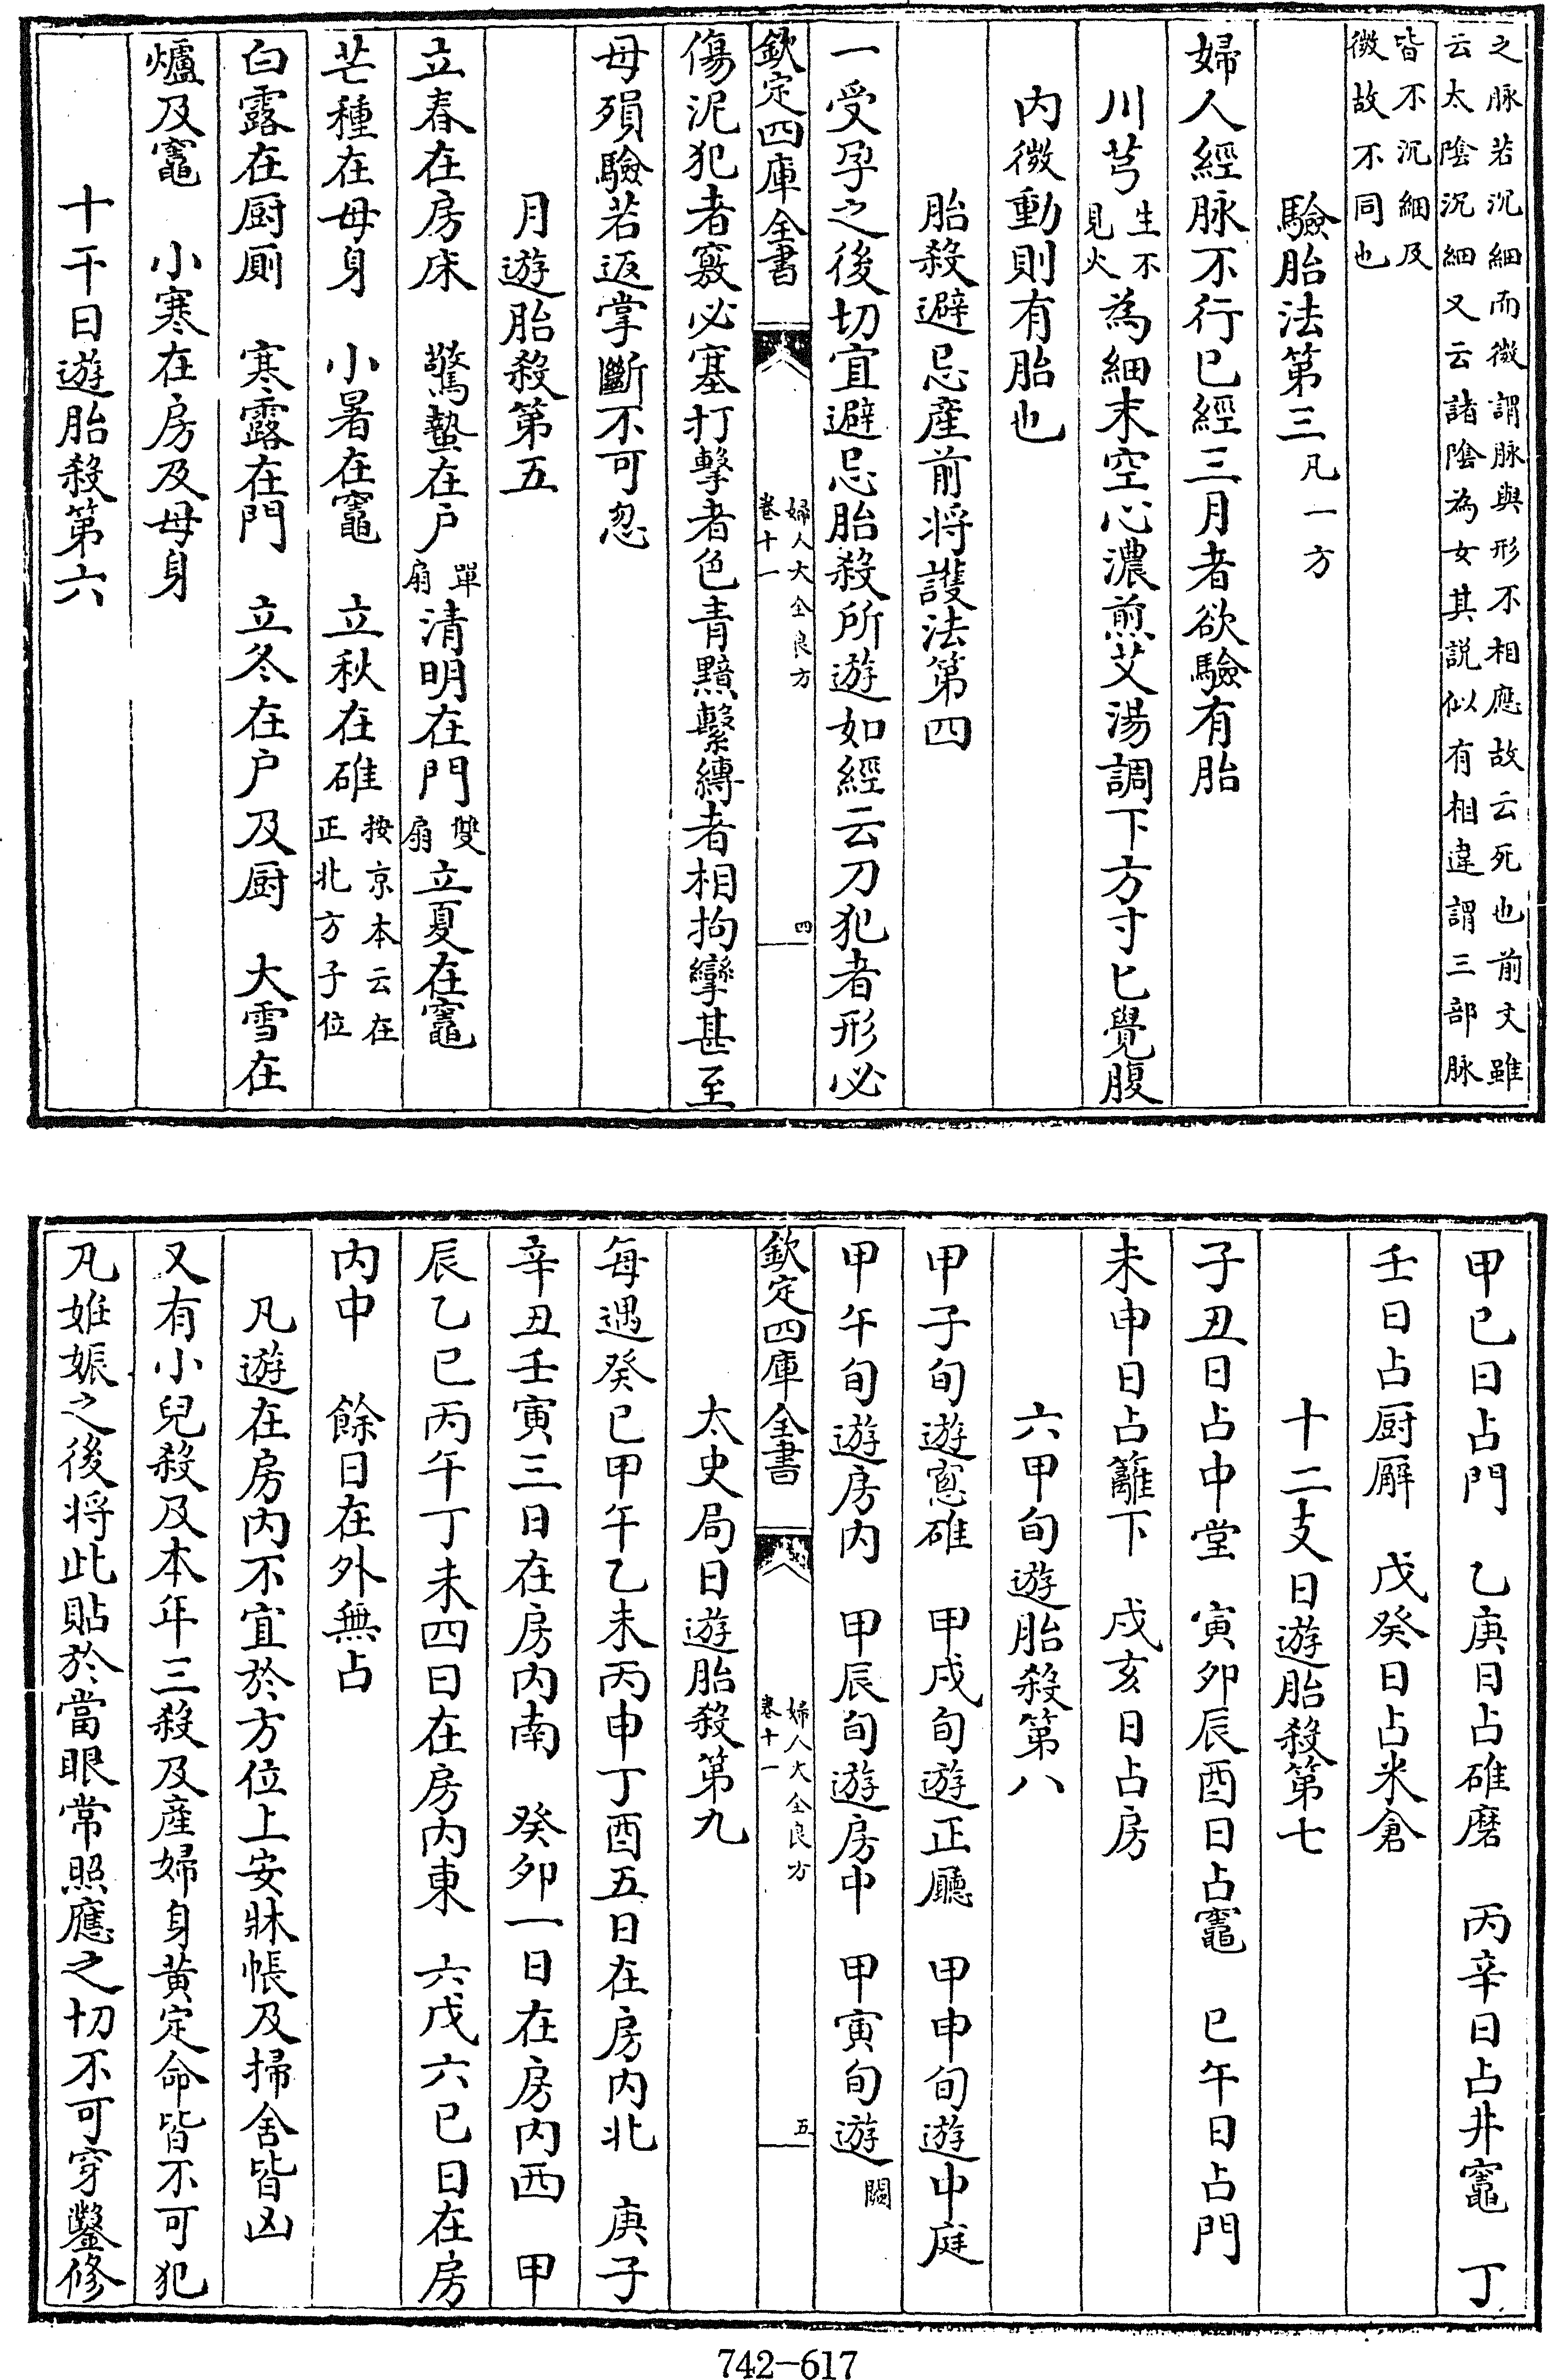 之脉若沉細而微謂脉與形不相應故云死也前文雖
云太陰沉細又云諸陰為女其説似有相違謂三部脉
皆不沉細及
微故不同也
驗胎法第三凡一方
婦人經脉不行已經三月者欲驗有胎
川芎生不見火為細末空心濃煎艾湯調下方寸匕覺腹
内微動則有胎也
胎殺避忌産前将護法第四
一受孕之後切宜避忌胎殺所遊如經云刀犯者形必
欽定四庫全書
婦人大全良方
卷十一
四
傷泥犯者竅必塞打擊者色青黯繫縛者相拘攣甚至
母殞驗若返掌斷不可忽
月遊胎殺第五
立春在房床 驚蟄在户單扇清明在門雙扇立夏在竈
芒種在母身 小暑在竈 立秋在碓按京本云在正北方子位
白露在厨厠 寒露在門 立冬在户及厨 大雪在
爐及竈 小寒在房及母身
十干日遊胎殺第六
甲已日占門 乙庚日占碓磨 丙辛日占井竈 丁
壬日占厨廨 戊癸日占米倉
十二支日遊胎殺第七
子丑日占中堂 寅卯辰酉日占竈 巳午日占門
未申日占籬下 戌亥日占房
六甲旬遊胎殺第八
甲子旬遊窓碓 甲戌旬遊正廳 甲申旬遊中庭
甲午旬遊房内 甲辰旬遊房中 甲寅旬遊闕
欽定四庫全書
婦人大全良方
卷十一
五
太史局日遊胎殺第九
每遇癸巳甲午乙未丙申丁酉五日在房内北 庚子
辛丑壬寅三日在房内南 癸卯一日在房内西 甲
辰乙巳丙午丁未四日在房内東 六戊六已日在房
内中 餘日在外無占
凡遊在房内不宜於方位上安牀帳及掃舍皆凶
又有小兒殺及本年三殺及産婦身黄定命皆不可犯
凡姙娠之後将此貼於當眼常照應之切不可穿鑿修
742-617